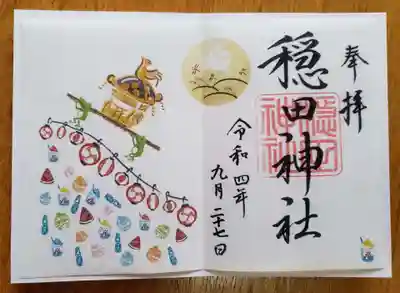 奉拝
穏田神社
穏田
神社
令和四年
九月二十七日